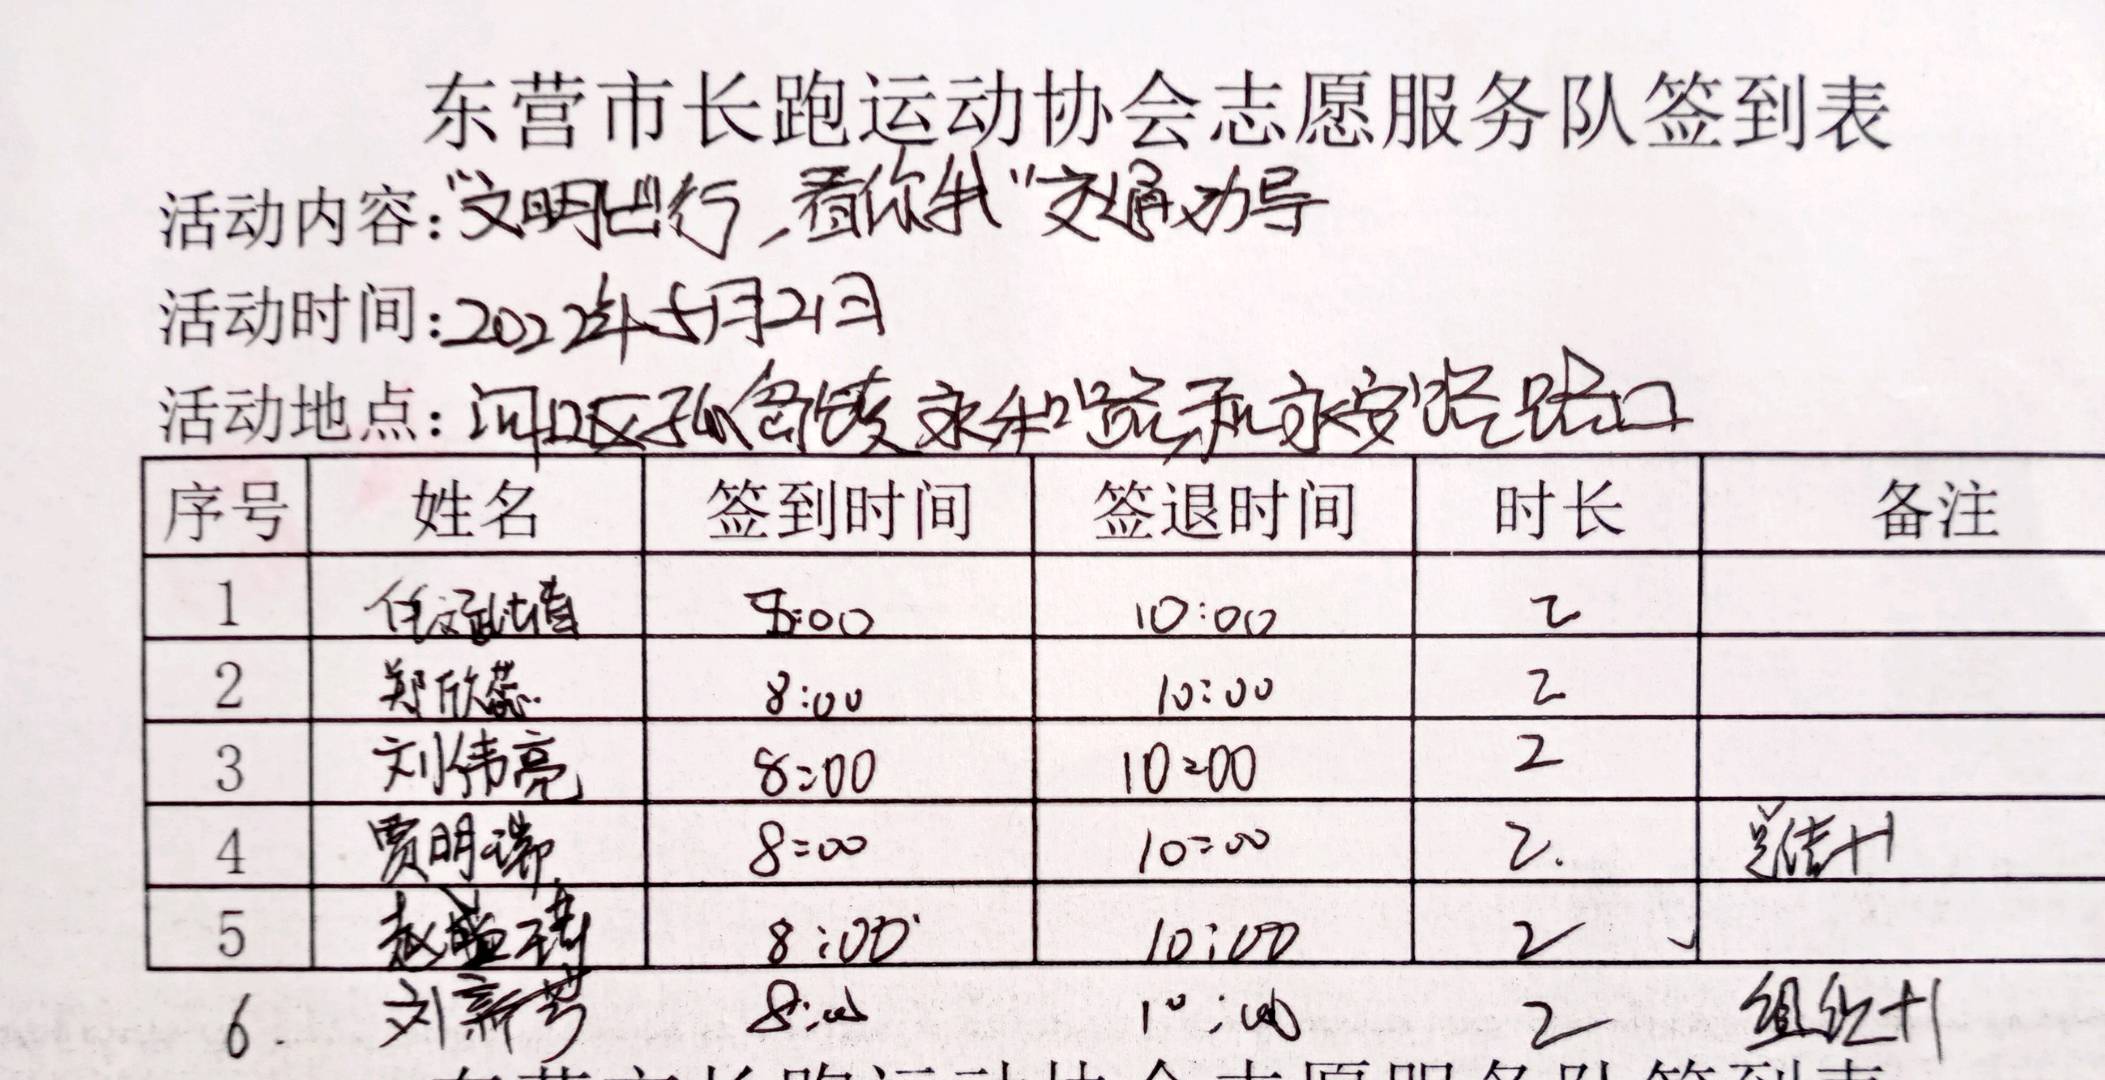 东营市长跑运动协会志愿服务队签到表
活动内容:“文明出行,看你我”交通劝导
活动时间:2022年5月21日
活动地点:河口区孤岛镇永和路和永安路路口
序号 姓名 签到时间 签退时间 时长 备注
1 :00 10:00 2
2 郑欣蕊 8:00 10:00 2
3 刘伟亮 8:00 10:00 2
4 贾明瑞 8:00 10:00 2. 总结+1
5 赵 8:00 10:00 2
6. 刘新芳 8:00 10:00 2 组织+1
东营市长跑运动协会志愿服务队签到表